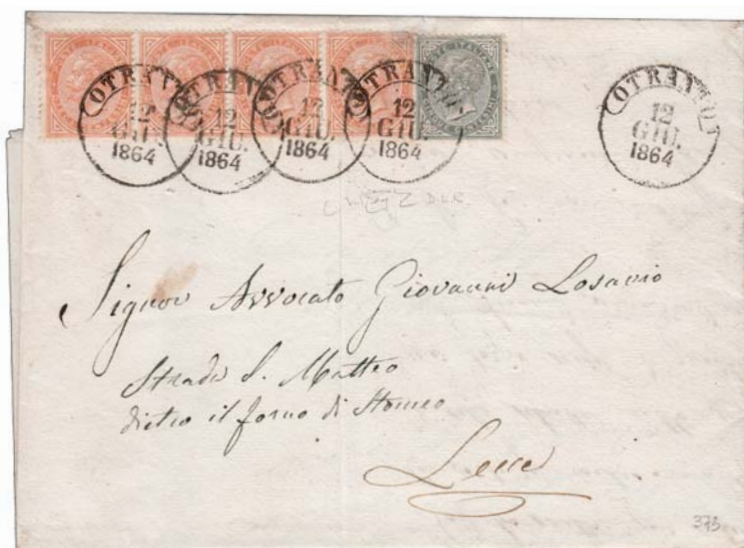 OTRANTO
12
GIU.
1864
OTRANTO
12
GIU.
1864
OTRANTO
12
GIU.
1864
OTRANTO
12
GIU.
1864
OTRANTO
12
GIU.
1864
Signor Avvocato Giovanni Losavio
Strada S. Matteo
dietro il forno di Stomeo
Lecce
375